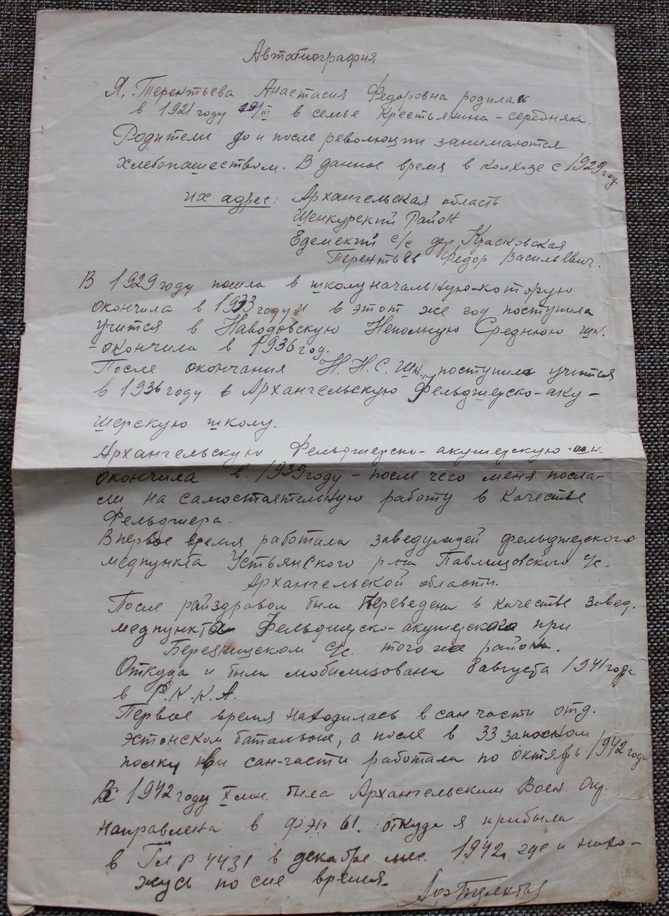 Автобиография
Я, Терентьева Анастасия Федоровна родилась
в 1921 году 19/III в семье крестьянина-середняка.
Родители до и после революции занимаются
хлебопашеством. В данное время в колхозе с 1929 год.
их адрес: Архангельская область
Шенкурский Район
Едемский с/с дер. Красковская
Терентьев Федор Васильевич.
В 1929 году пошла в школу начальную которую
окончила в 1933 году и в этот же год поступила
учится в Наводовскую Неполную Среднюю шк.
- окончила в 1936 год.
После окончания Н.Н.С.Шк. поступила учится
в 1936 году в Архангельскую Фельдшерско-аку-
шерскую школу.
Архангельскую Фельдшерско-акушерскую шк.
окончила в 1939 году - после чего меня посла-
ли на самостоятельную работу в качестве
Фельдшера.
Впервое время работала заведующей фельдшерского
медпункта Устьянского р-на Павлицовского с/с.
Архангельской области.
После райздравом был переведена в качестве завед.
медпункта Фельдшерско-акушерского при
Березницском с/с. того же района.
Откуда и была мобилизована 8 августа 1941 года
в Р.К.К.А.
Первое время находилась в сан части отд.
Эстонском батальоне, а после в 33 запасном
полку при сан-части работала по октябрь 1942 год
В 1942 году X мес. была Архангельским Воен. Окр.
направлена в ФЭП 61. откуда я прибыла
в ГЛР 4431 в декабре мес. 1942 г. где и нахо-
жусь по сие время.